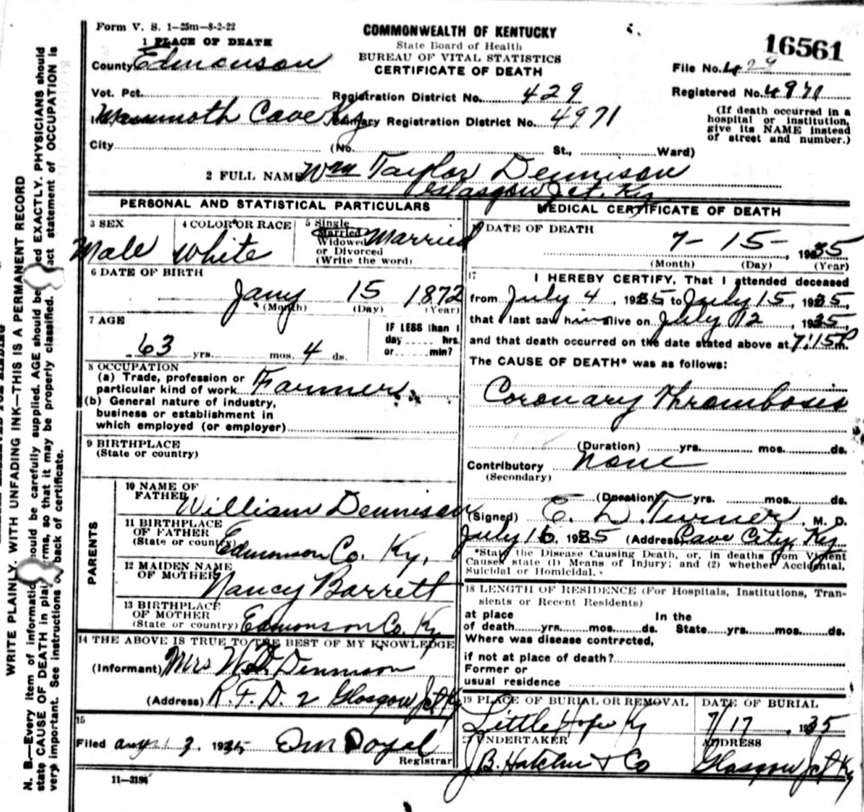 Form V. S. 1-25m-8-2-22
1 PLACE OF DEATH
County Edmonson
Vot. Pct.
Mammoth Cave Ky
City
COMMONWEALTH OF KENTUCKY
State Board of Health
BUREAU OF VITAL STATISTICS
CERTIFICATE OF DEATH
Registration District No. 429
Primary Registration District No. 4971
(No. St., Ward)
16561
File No. 29
Registered No. 4971
(If death occurred in a
hospital or institution,
give its NAME instead
of street and number.)
2 FULL NAME Wm Taylor Dennison
Glasgow Jct. Ky
PERSONAL AND STATISTICAL PARTICULARS
3 SEX
Male
4 COLOR OR RACE
White
5 Single
Married
Widowed
or Divorced
(Write the word)
Married
6 DATE OF BIRTH
Jany 15 1872
(Month) (Day) (Year)
7 AGE
63 yrs. mos. 4 ds.
IF LESS than 1
day hrs.
or min?
8 OCCUPATION
(a) Trade, profession or
particular kind of work Farmer
(b) General nature of industry,
business or establishment in
which employed (or employer)
9 BIRTHPLACE
(State or country)
PARENTS
10 NAME OF
FATHER William Dennison
11 BIRTHPLACE
OF FATHER
(State or country) Edmonson Co. Ky.
12 MAIDEN NAME
OF MOTHER Nancy Barrett
13 BIRTHPLACE
OF MOTHER
(State or country) Edmonson Co. Ky
14 THE ABOVE IS TRUE TO THE BEST OF MY KNOWLEDGE
(Informant) Mrs W. Dennison
(Address) R.F.D. 2 Glasgow Jct Ky
15
Filed Aug 3, 1935
Registrar
11-3184
MEDICAL CERTIFICATE OF DEATH
DATE OF DEATH
7- 15- , 1935
(Month) (Day) (Year)
17
I HEREBY CERTIFY, That I attended deceased
from July 4, 1935 to July 15, 1935,
that I last saw him alive on July 12, 1935
and that death occurred on the date stated above at 7:15P m.
The CAUSE OF DEATH* was as follows:
Coronary Thrombosis
(Duration) yrs. mos. ds.
Contributory None
(Secondary)
(Duration) yrs. mos. ds.
(Signed) E. D. Turner M. D.
July 16, 1935 (Address) Cave City, Ky
*State the Disease Causing Death, or, in deaths from Violent
Causes state (1) Means of Injury; and (2) whether Accidental,
Suicidal or Homicidal.
18 LENGTH OF RESIDENCE (For Hospitals, Institutions, Tran-
sients or Recent Residents)
at place
of death yrs. mos. ds.
In the
State yrs. mos. ds.
Where was disease contrcted,
if not at place of death?
Former or
usual residence
19 PLACE OF BURIAL OR REMOVAL
Little Hope Ky
DATE OF BURIAL
7/17, 1935
UNDERTAKER
J.B. Hatcher & Co
ADDRESS
Glasgow Jct Ky
WRITE PLAINLY, WITH UNFADING INK—THIS IS A PERMANENT RECORD
N. B.—Every item of information should be carefully supplied. AGE should be stated EXACTLY. PHYSICIANS should
state CAUSE OF DEATH in plain terms, so that it may be properly classified. Exact statement of OCCUPATION is
very important. See instructions on back of certificate.